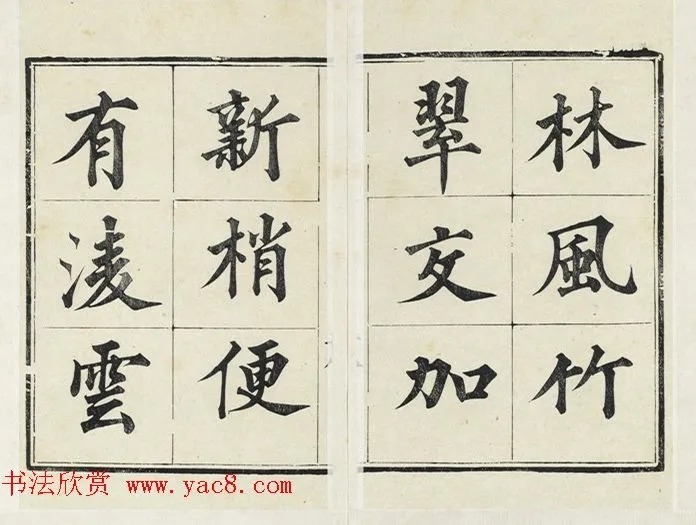 林風竹
翠交加
新梢便
有淩雲
书法欣赏 www.yac8.com